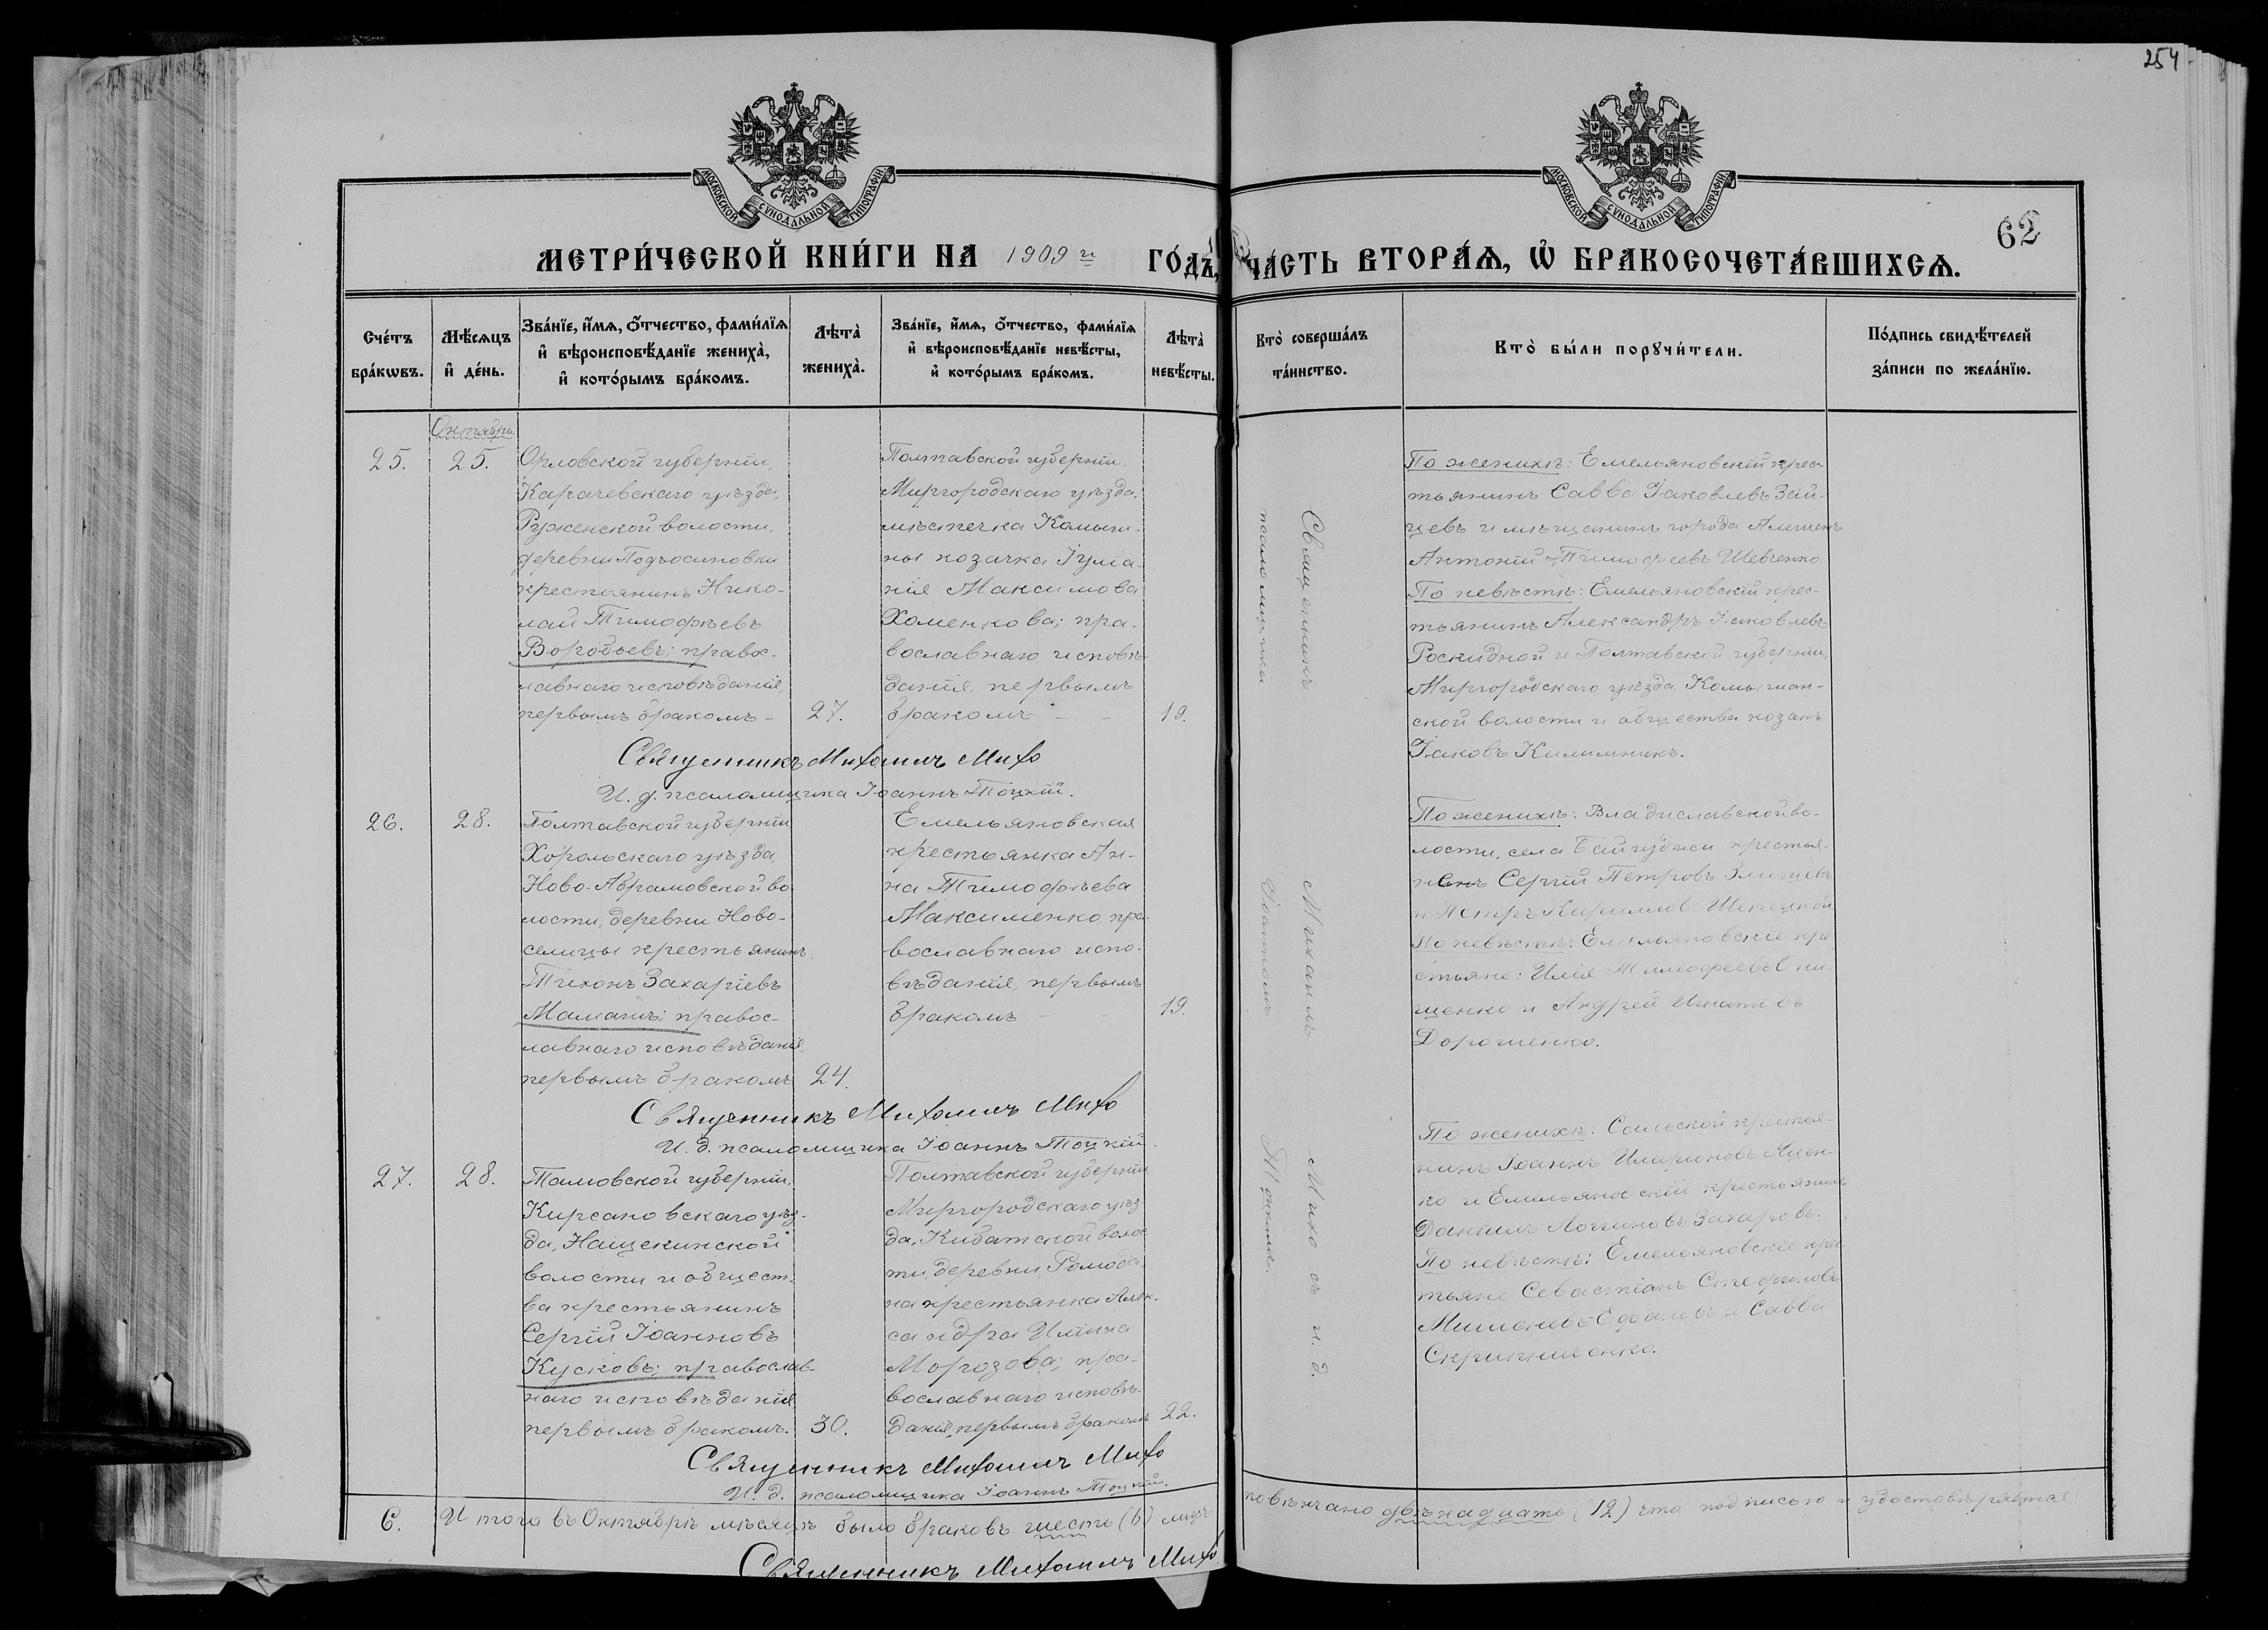 254
МОСКОВСКОЙ СѴНОДАЛЬНОЙ ТИПОГРАФІИ
МОСКОВСКОЙ СѴНОДАЛЬНОЙ ТИПОГРАФІИ
62
МЕТРИ́ЧЕСКОЙ КНИ́ГИ НА 1909 й ГО́ДЪ, ЧА́СТЬ ВТОРА́Ѧ, Ѽ БРАКОСОЧЕТА́ВШИХСѦ.
Сче́тъ
бра́кѡвъ.
Мѣ́сѧцъ
и҆ де́нь.
Зва́нїе, и҆́мѧ, ѻ҆́тчество, фами́лїѧ
и҆ вѣроисповѣ́данїе жениха̀,
и҆ кото́рымъ бра́комъ.
Лѣта̀
жениха̀.
Зва́нїе, и҆́мѧ, ѻ҆́тчество, фами́лїѧ
и҆ вѣроисповѣ́данїе невѣ́сты,
и҆ кото́рымъ бра́комъ.
Лѣта̀
невѣ́сты.
Кто̀ соверша́лъ
та́инство.
Кто̀ бы́ли порꙋчи́тели.
По́дпись свидѣ́телей
за́писи по жела́нїю.
Октябрь.
25.
25.
Орловской губерніи,
Карачевскаго уѣзда,
Руженской волости,
деревни Подъосиновки
крестьянинъ Нико-
лай Тимофѣевъ
Воробьевъ; правос-
лавнаго исповѣданія,
первымъ бракомъ –
27.
Полтавской губерніи,
Миргородскаго уѣзда,
мѣстечка Комыш-
ны козачка Іулі
нія Максимова
Хоменкова; пра-
вославнаго исповѣ-
данія, первымъ
бракомъ – –
19.
По женихѣ: Емельяновскій крес-
тьянинъ Савва Іаковлевъ Зай-
цевъ и мѣщанинъ города Алешекъ
Антоній Тимофеевъ Шевченко.
По невѣстѣ: Емельяновскій крес-
тьянинъ Александръ Іаковлевъ
Роскидной и Полтавской губерніи,
Миргородскаго уѣзда, Комышан-
ской волости и общества козакъ
Іаковъ Килимникъ.
Священникъ Михаилъ Михо
И. д. псаломщика Іоаннъ Тоцкій.
26.
28.
Полтавской губерніи
Хорольскаго уѣзда,
Ново-Абрамовской во-
лости, деревни Ново-
селицы крестьянинъ
Тихонъ Захаріевъ
Маманъ; правос-
лавнаго исповѣданія,
первымъ бракомъ
24.
Емельяновская
крестьянка Ан-
на Тимофѣева
Максименко, пра-
вославнаго испо-
вѣданія, первымъ
бракомъ –
19.
По женихѣ: Владиславской во-
лости, села Байгуджи крестья-
нинъ Сергій Петровъ
и Петръ Кирилловъ
По невѣстѣ: Емельяновскіе кре
стьяне: Илія Тимофеевъ Они
щенко и Андрей Игнатіевъ
Дорошенко.
Священникъ Михаилъ Михо
И. д. псаломщика Іоаннъ Тоцкій.
27.
28.
Тамбовской губерніи,
Кирсановскаго уѣз-
да, Нащекинской
волости и общест-
ва крестьянинъ
Сергій Іоанновъ
Кусковъ; православ-
наго исповѣданія,
первымъ бракомъ.
30.
Полтавской губерніи
Миргородскаго уѣз
да, Кибатской волос
ти, деревни Ромода
на крестьянка Алек-
сандра Иліина
Морозова; пра-
вославнаго исповѣ-
данія, первымъ бракомъ
22.
По женихѣ: Сальской крестья-
нинъ Іоаннъ Иларіоновъ Яцен-
ко и Емельяновскій крестьянинъ
Даніилъ Логиновъ Захаровъ.
По невѣстѣ: Емельяновскіе крес
тьяне Севастіанъ Стефановъ
и Савва
Скрипниченко.
Священникъ Михаилъ Михо съ и. д.
псаломщика Іоанномъ Тоцкимъ.
Священникъ Михаилъ Михо
И. д. псаломщика Іоаннъ Тоцкій.
6. Итого въ Октябрѣ мѣсяцѣ было браковъ шесть (6) лицъ повѣнчано двѣнадцать (12) что подписью и удостовѣряется
Священникъ Михаилъ Михо